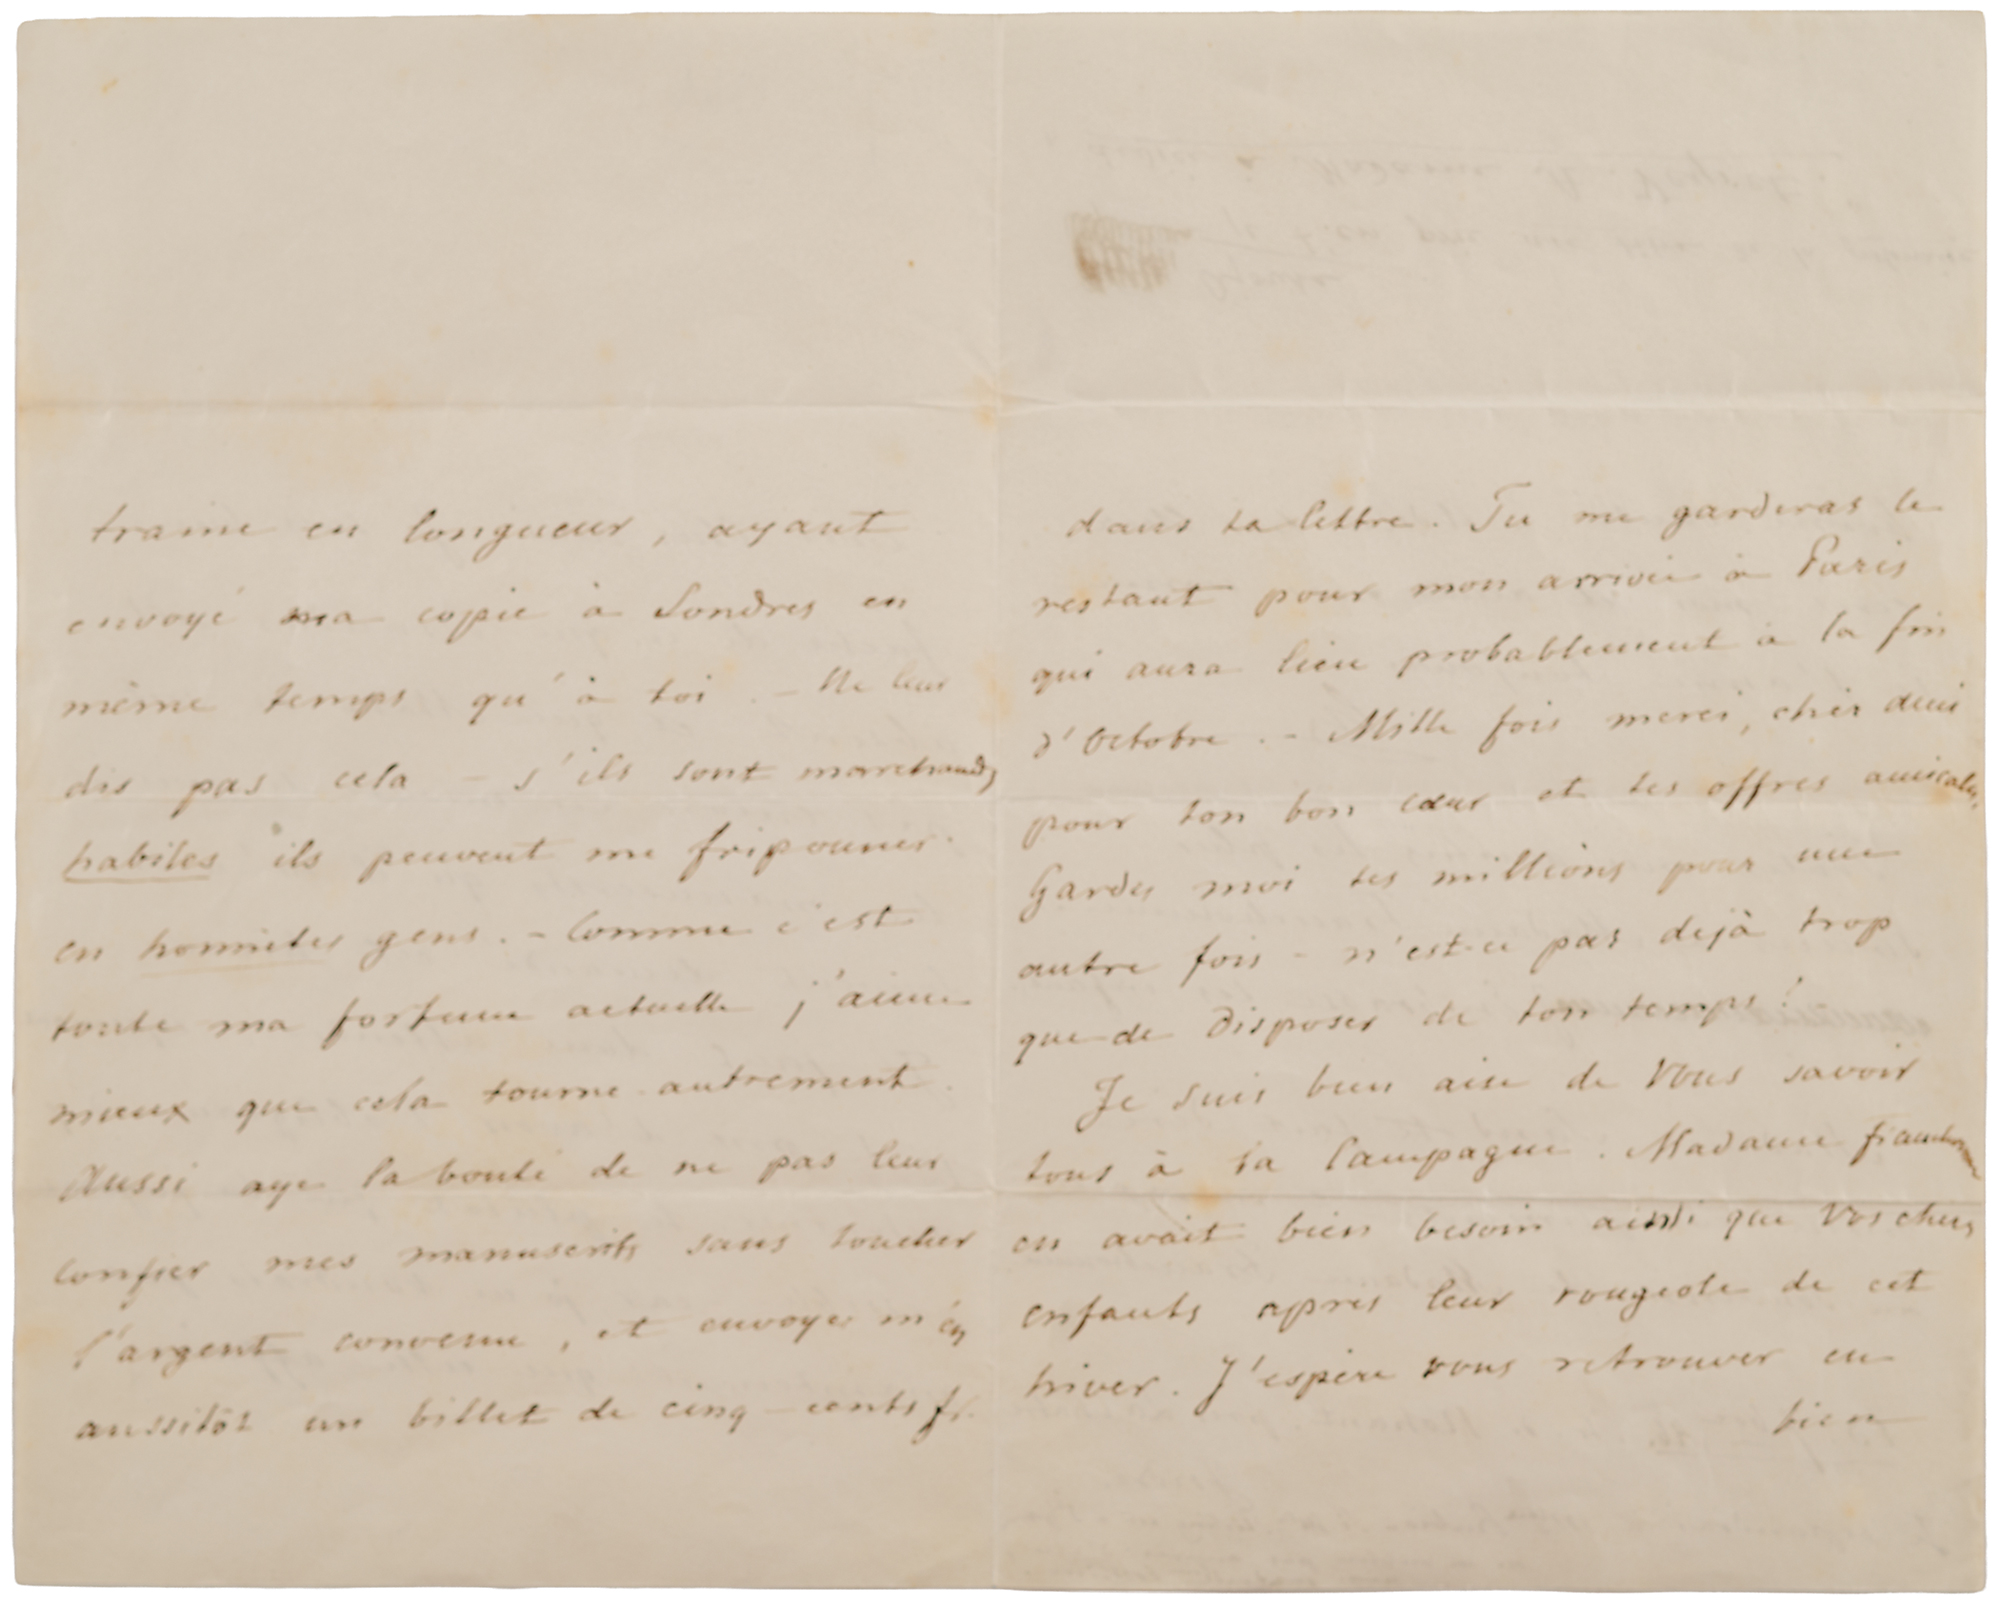 traine en longueur, ayant
envoyé ma copie à Londres en
même temps qu'à toi. – Ne leur
dis pas cela – s'ils sont marchands
habiles ils peuvent me friponner
en honnêtes gens. – Comme c'est
toute ma fortune actuelle j'aime
mieux que cela tourne autrement.
Aussi aye la bonté de ne pas leur
confier mes manuscrits sans toucher
l'argent convenu, et envoyes m'en
aussitôt un billet de cinq-cents fr.
dans ta lettre. Tu me garderas le
restant pour mon arrivée à Paris
qui aura lieu probablement à la fin
d'Octobre. – Mille fois merci, cher ami
pour ton bon cœur et tes offres amicales.
Gardes moi tes millions pour une
autre fois – n'est-ce pas dejà trop
que de disposer de ton temps!
Je suis bien aise de Vous savoir
tous à la Campagne. Madame Franchomme
en avait bien besoin ainsi que Vos chers
enfants après leur rougeole de cet
hiver. J'espère vous retrouver en
bien